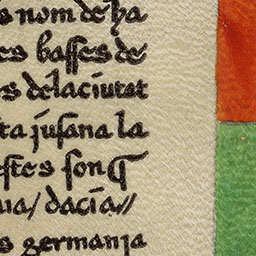 s nom de ha
es basses de
s dela ciutat
ta jusana la
estes son
uia/ dacia//
s germanja